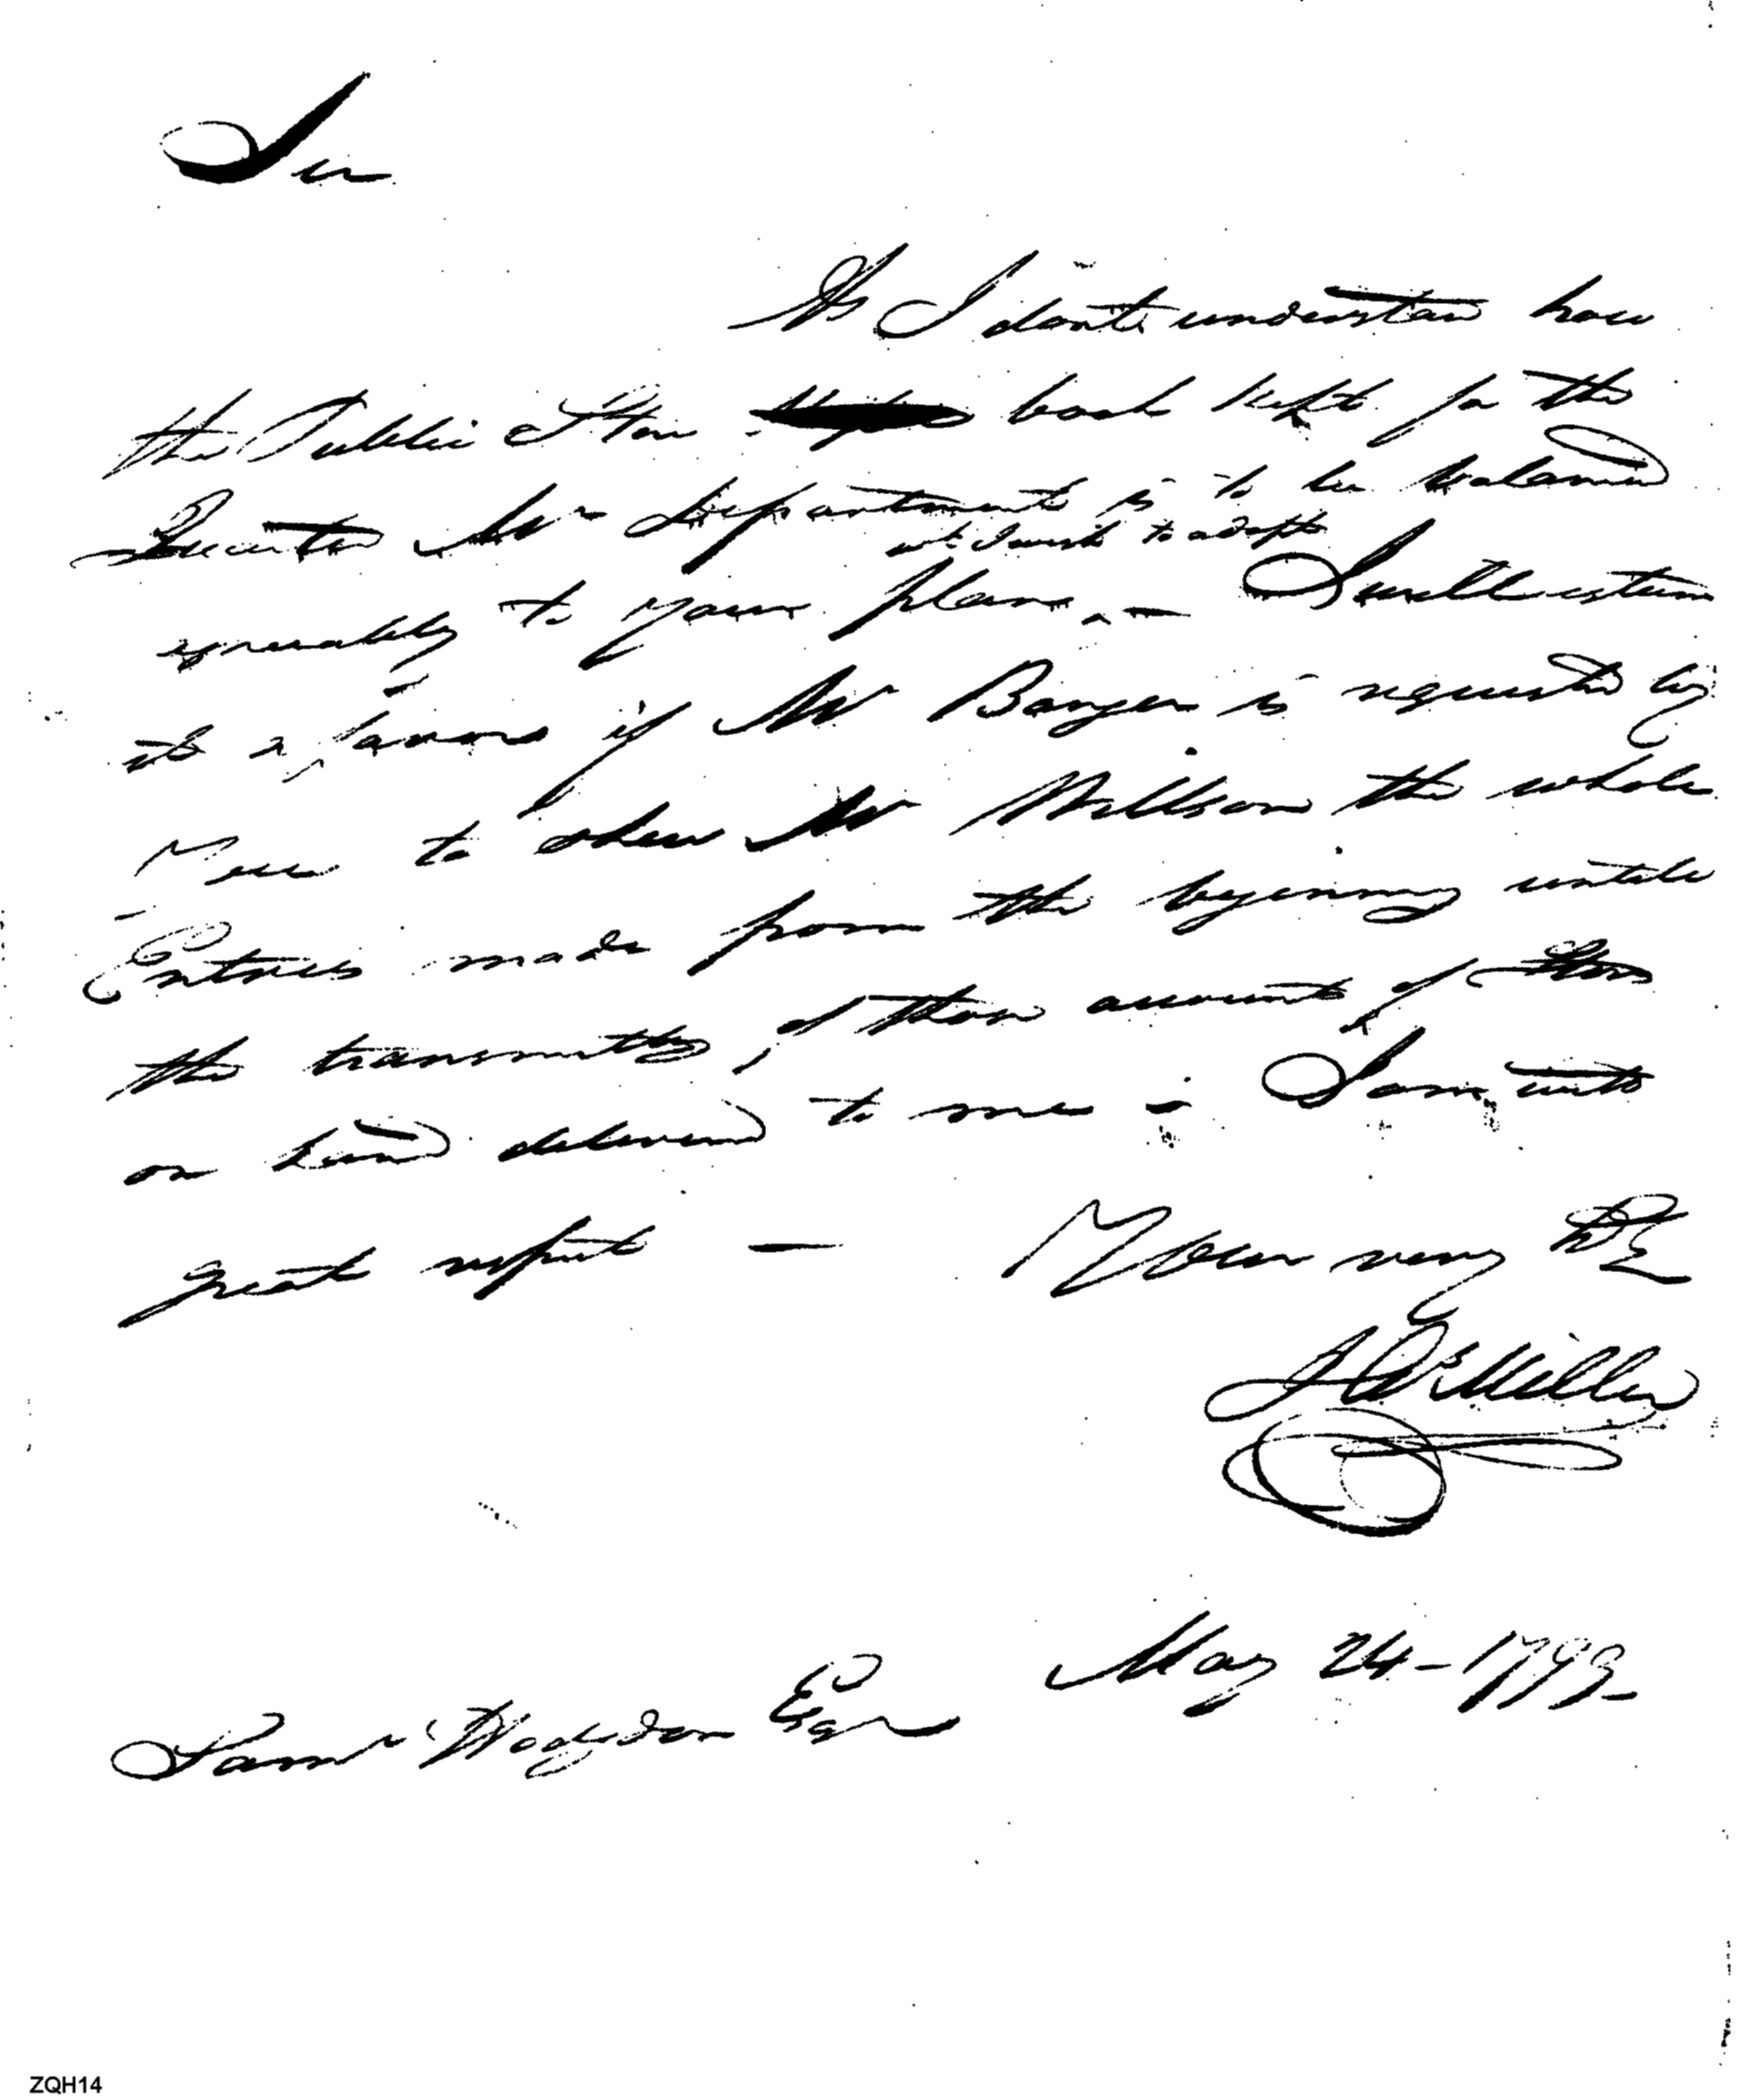 Sir
As I don't understand how
the Public Store book kept for the
Quarter Mr Department is to be balanced
wh. I wish to adopt
agreeably to your plan. — I will esteem
it a favor if Mr Banger is requested by
You to shew Mr Millson the whole
Entries made from the begening untill
the transmitting, of those accounts of Stores
on hand delivered to me — I am with
great respect — Your very
Jno Miller
May 24 - 1793 -
Saml Hodgdon Esqr
ZQH14